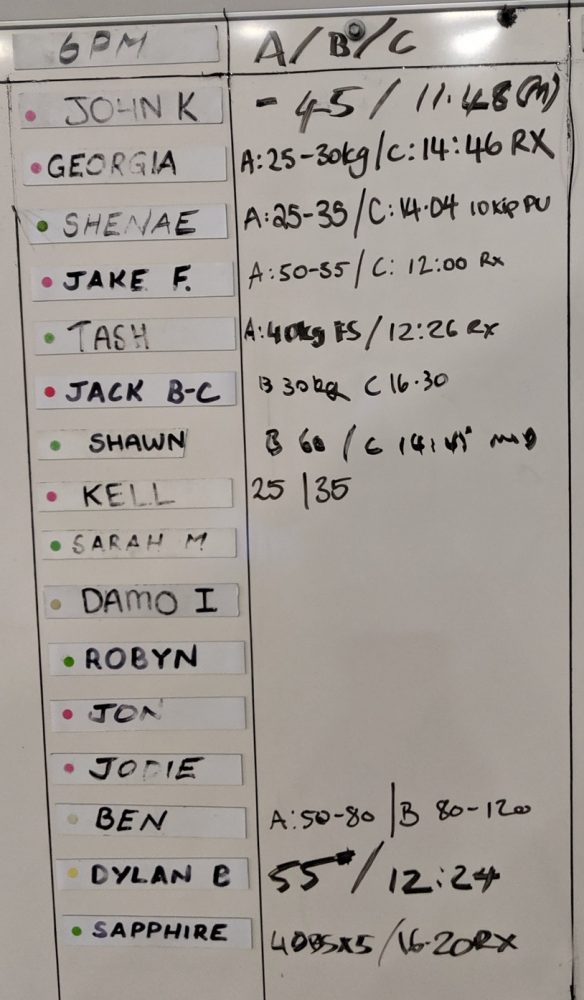 6PM A/B/C
JOHN K - 45 / 11.48 (M)
GEORGIA A:25-30kg/C:14:46 RX
SHENAE A:25-35/C:14.04 10 Kip PU
JAKE F. A:50-55/C: 12:00 Rx
TASH A:40kg FS/12:26 Rx
JACK B-C B 30kg C 16.30
SHAWN B 60 / C
KELL 25 | 35
SARAH M
DAMO I
ROBYN
JON
JODIE
BEN A:50-80 | B 80-120
DYLAN B 55 / 12:24
SAPPHIRE 40BSX5/16.20RX